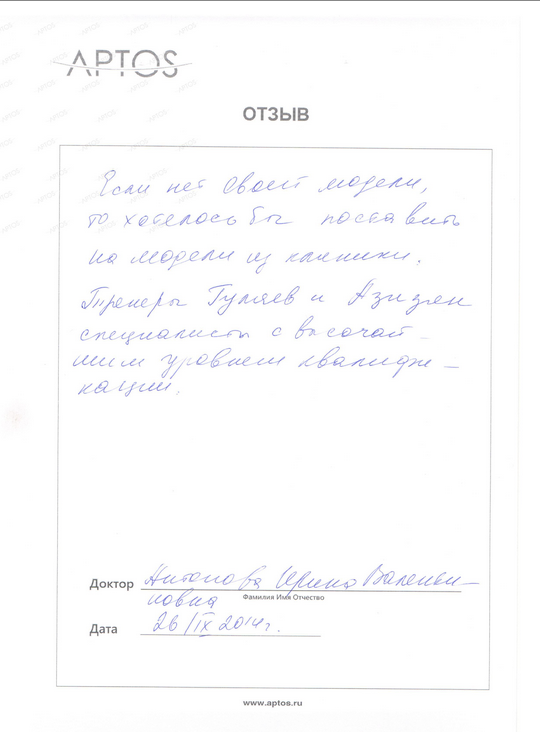 APTOS
ОТЗЫВ
Если нет своей модели,
то хотелось бы поставить
на модели из клиники.
Тренеры Гуляев и Азизян
специалисты с высочай-
шим уровнем квалифи-
кации.
Доктор Антонова Ирина Валенти-
новна
Фамилия Имя Отчество
Дата 26/IX 2014г.
www.aptos.ru